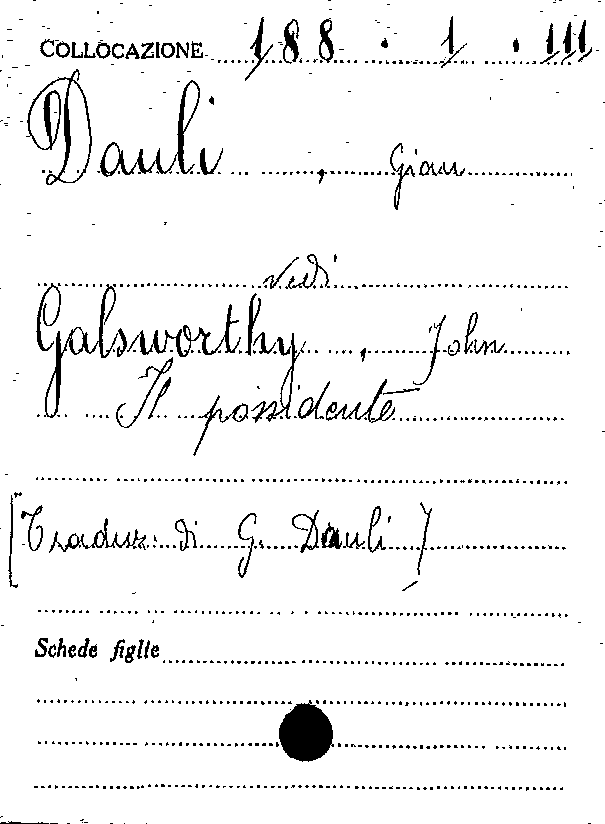 COLLOCAZIONE 188.1.III
Dauli, Gian
vedi
Galsworthy, John
Il possidente
[Traduz. di G. Dauli]
Schede figlie